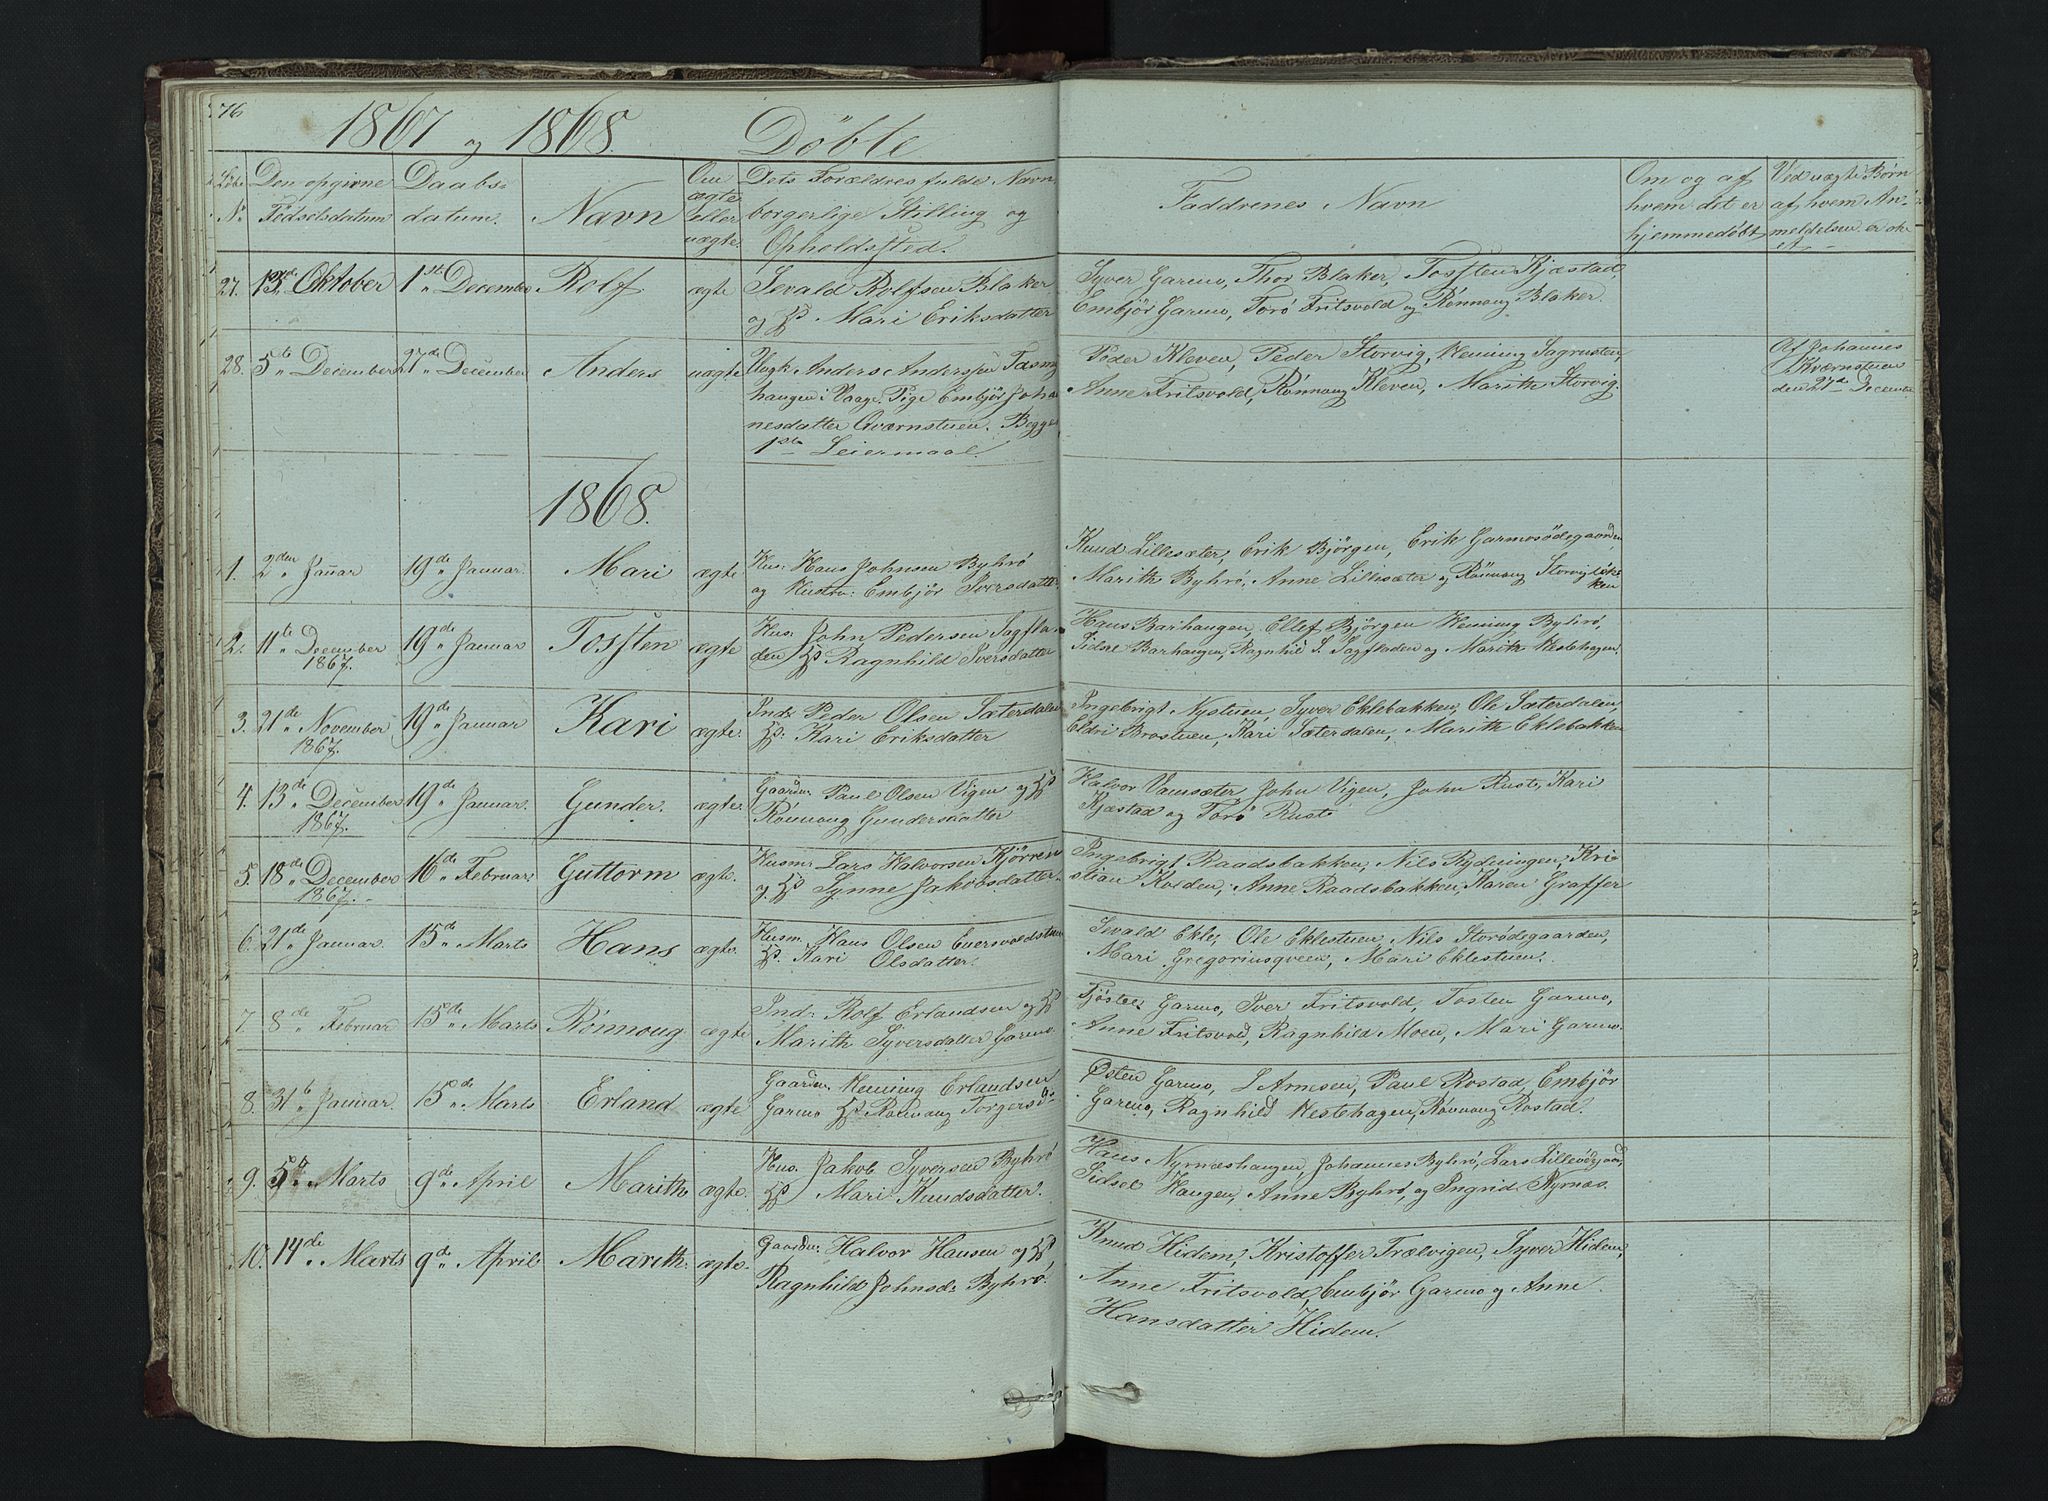 76
1867 og 1868. Döbte
Löbe No
Den opgivne Födselsdatum
Daabsdatum.
Navn
Om ægte eller uægte.
Dets Forældres fulde Navn, borgerlige Stilling og Opholdssted.
Faddrenes Navn
Om og af hvem det er hjemmedöbt
Ved uægte Börn af hvem Anmeldelsen er
27. Oktober 1ste December Rolf ægte
Sevald Rolfsen Blaker
og Mari Eriksdatter
Syver Garmo, Thor Blaker, Tossten Kjæstad,
Embjör Garmo, Torö Fritsvold og Rönnoug Blaker.
28. 5te December 27de December Anders uægte
Ungk. Anders Anderssen
haugen i Vaage. Pige Embjör Joha
nesdatter Qværnstuen. Begges
1ste Leiermaal.
Peder Kleven, Peder Storvig, Henning Sagrusten,
Anne Fritsvold, Rönnoug Kleven, Marith Storvig.
Af Johannes
Kværnstuen
den 27de December
1868.
1. 2den Januar 19de Januar. Mari ægte
Hus: Hans Johnsen Byhrö
og Hustru: Embjör Iversdatter.
Knud Lillesæter, Erik Björgen, Erik Garmosödegaarden,
Marith Byhrö, Anne Lillesæter og Rönnoug Storvigløk-
ken
2. 11te December 1867. 19de Januar Tossten ægte
Hus: John Pedersen Sagfla-
den Ragnhild Iversdatter
Hans Barhaugen, Ellef Björgen Henning Byhrö,
Sidsel Barhaugen, Ragnhil S. Sagfladen og Marith Hestehagen.
3. 21de November 1867. 19de Januar Kari ægte.
Ind: Peder Olsen Sæterdalen
Kari Eriksdatter
Ingebrigt Nystuen, Syver Eklebakken, Ole Sæterdalen,
Eldri Brostuen, Kari Sæterdalen, Marith Eklebakken
4. 13de December 1867. 19de Januar. Gunder. ægte.
Gaardm: Paul Olsen Vigen og
Rönnoug Gundersdatter
Halvor Vamsæter John Vigen, John Rust, Kari
Kjæstad og Torö Rust
5. 18de December 1867. 16de Februar Guttorm ægte.
Husm: Lars Halvorsen Kjörren
og Synne Jakobsdatter.
Ingebrigt Raadsbakken, Nils Rydningen, Kri-
stian Kolden, Anne Raadsbakken, Karen Graffer
6. 21de Januar. 15de Marts Hans ægte.
Husm. Hans Olsen
Kari Olsdatter.
Sevald Ekle, Ole Eklestuen, Nils Storödegaarden,
Mari, Mari Eklestuen.
7. 8de Februar 15de Marts Rönnoug ægte
Ind: Rolf Erlandsen og
Marith Syversdatter Garmo.
Garmo, Iver Fritsvold, Tosten Garmo,
Anne Fritsvold, Ragnhild Moen, Mari Garmo.
8. 31te Januar. 15de Marts Erland ægte
Gaardm: Henning Erlandsen
Garmo Rönnoug Torgersd:
Østen Garmo, I. Arnesen, Paul Rostad, Embjör
Garmo, Ragnhild Hestehagen, Rönnoug Rostad.
9. 5te Marts 9de April Marith ægte.
Hus. Jakob Syversen Byhrö
Mari Knudsdatter.
Hans Nyrnæshaugen, Johannes Byhrö, Lars,
Sidsel Haugen, Anne Byhrö, og Ingrid Nyrnæs.
10. 14de Marts 9de April Marith. ægte.
Gaardm: Halvor Hansen og
Ragnhild Johnsd: Byhrö.
Knud Hidem, Kristoffer Trælvigen, Syver Hidem,
Anne Fritsvold, Embjör Garmo og Anne
Hansdatter Hidem.